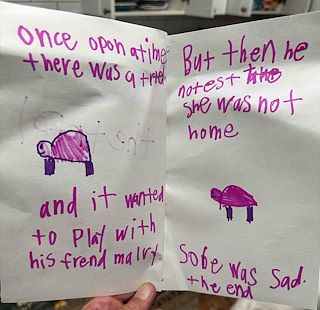 once oponatime
there was a trtel
and it wanted
to Play with
his frend malry
But then he
notest
she was not
home
So he was sad.
the end